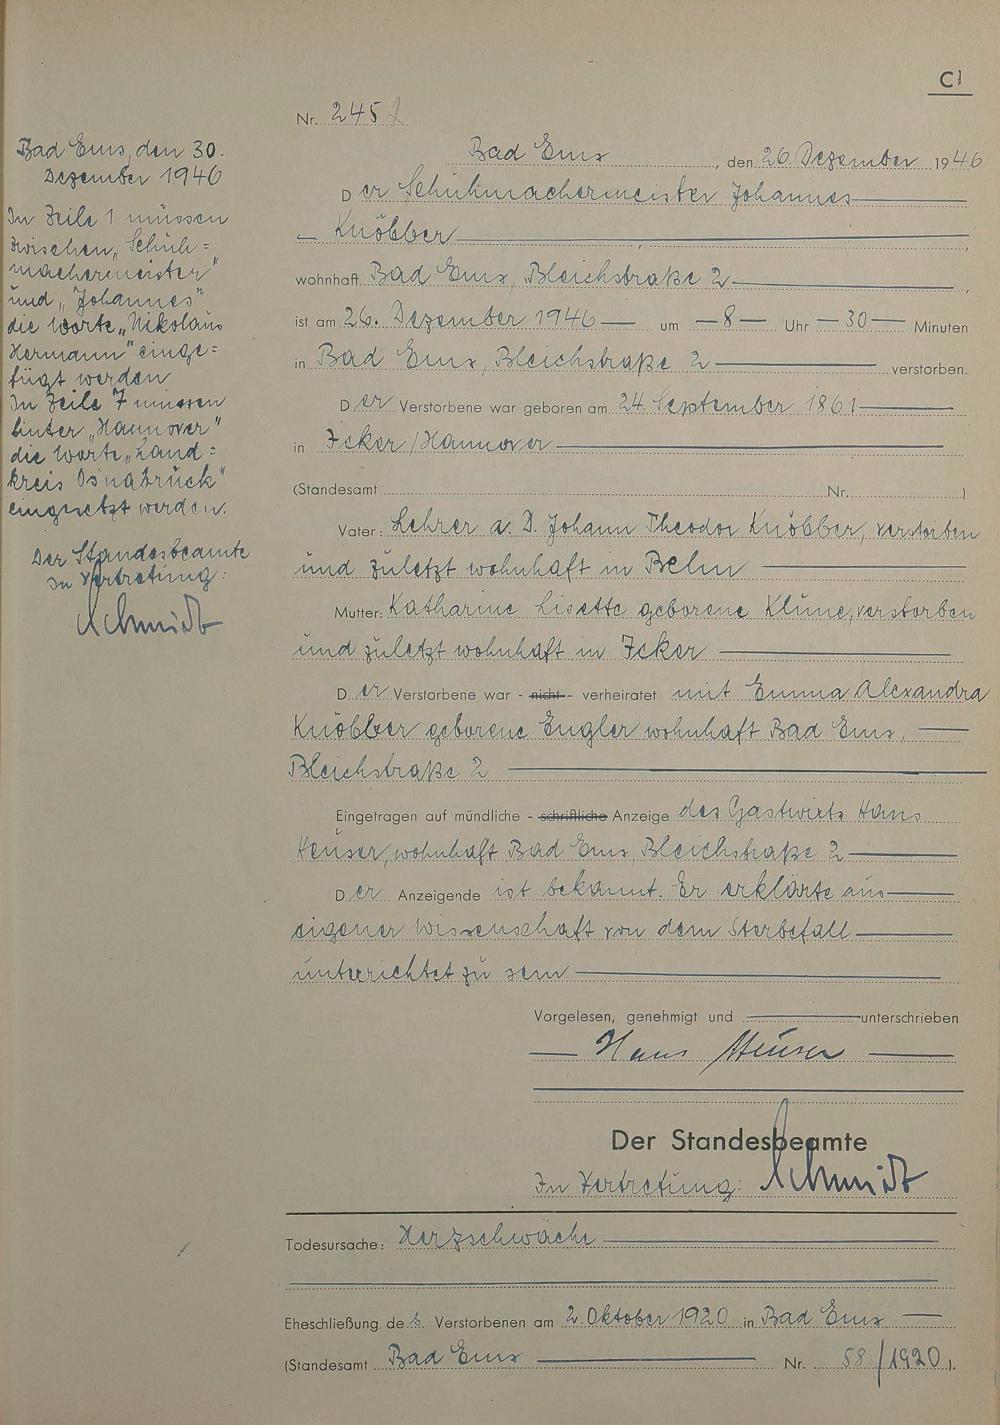 C1
Nr. 245
Bad Ems, den 26. Dezember 1946
Der Schuhmachermeister Johannes
Knöbber
wohnhaft Bad Ems, Bleichstraße 2
ist am 26. Dezember 1946 um 8 Uhr 30 Minuten
in Bad Ems, Bleichstraße 2 verstorben.
Der Verstorbene war geboren am 24. September 1861
in Icker/Hannover
(Standesamt Nr. )
Vater: Lehrer a. D. Johann Theodor Knöbber, verstorben
und zuletzt wohnhaft in Belm
Mutter: Katharine Lisette geborene Klüne, verstorben
und zuletzt wohnhaft in Icker
Der Verstorbene war - nicht - verheiratet mit Emma Alexandra
Knöbber geborene Engler wohnhaft Bad Ems,
Bleichstraße 2
Eingetragen auf mündliche - schriftliche Anzeige des Gastwirts Hans
Heuser, wohnhaft Bad Ems, Bleichstraße 2
Der Anzeigende ist bekannt. Er erklärte aus
eigener Wissenschaft von dem Sterbefall
unterrichtet zu sein
Vorgelesen, genehmigt und unterschrieben
Hans Heuser
Der Standesbeamte
In Vertretung: Schmidt
Todesursache: Herzschwäche
Eheschließung des Verstorbenen am 2. Oktober 1920 in Bad Ems
(Standesamt Bad Ems Nr. 58/1920).
Bad Ems, den 30.
Dezember 1946
In Zeile 1 müssen
zwischen „Schuh=
machermeister"
und „Johannes"
die Worte „Nikolaus
Hermann" einge=
fügt werden
In Zeile 7 müssen
hinter „Hannover"
die Worte „Land=
kreis Osnabrück"
eingesetzt werden.
Der Standesbeamte
In Vertretung:
Schmidt